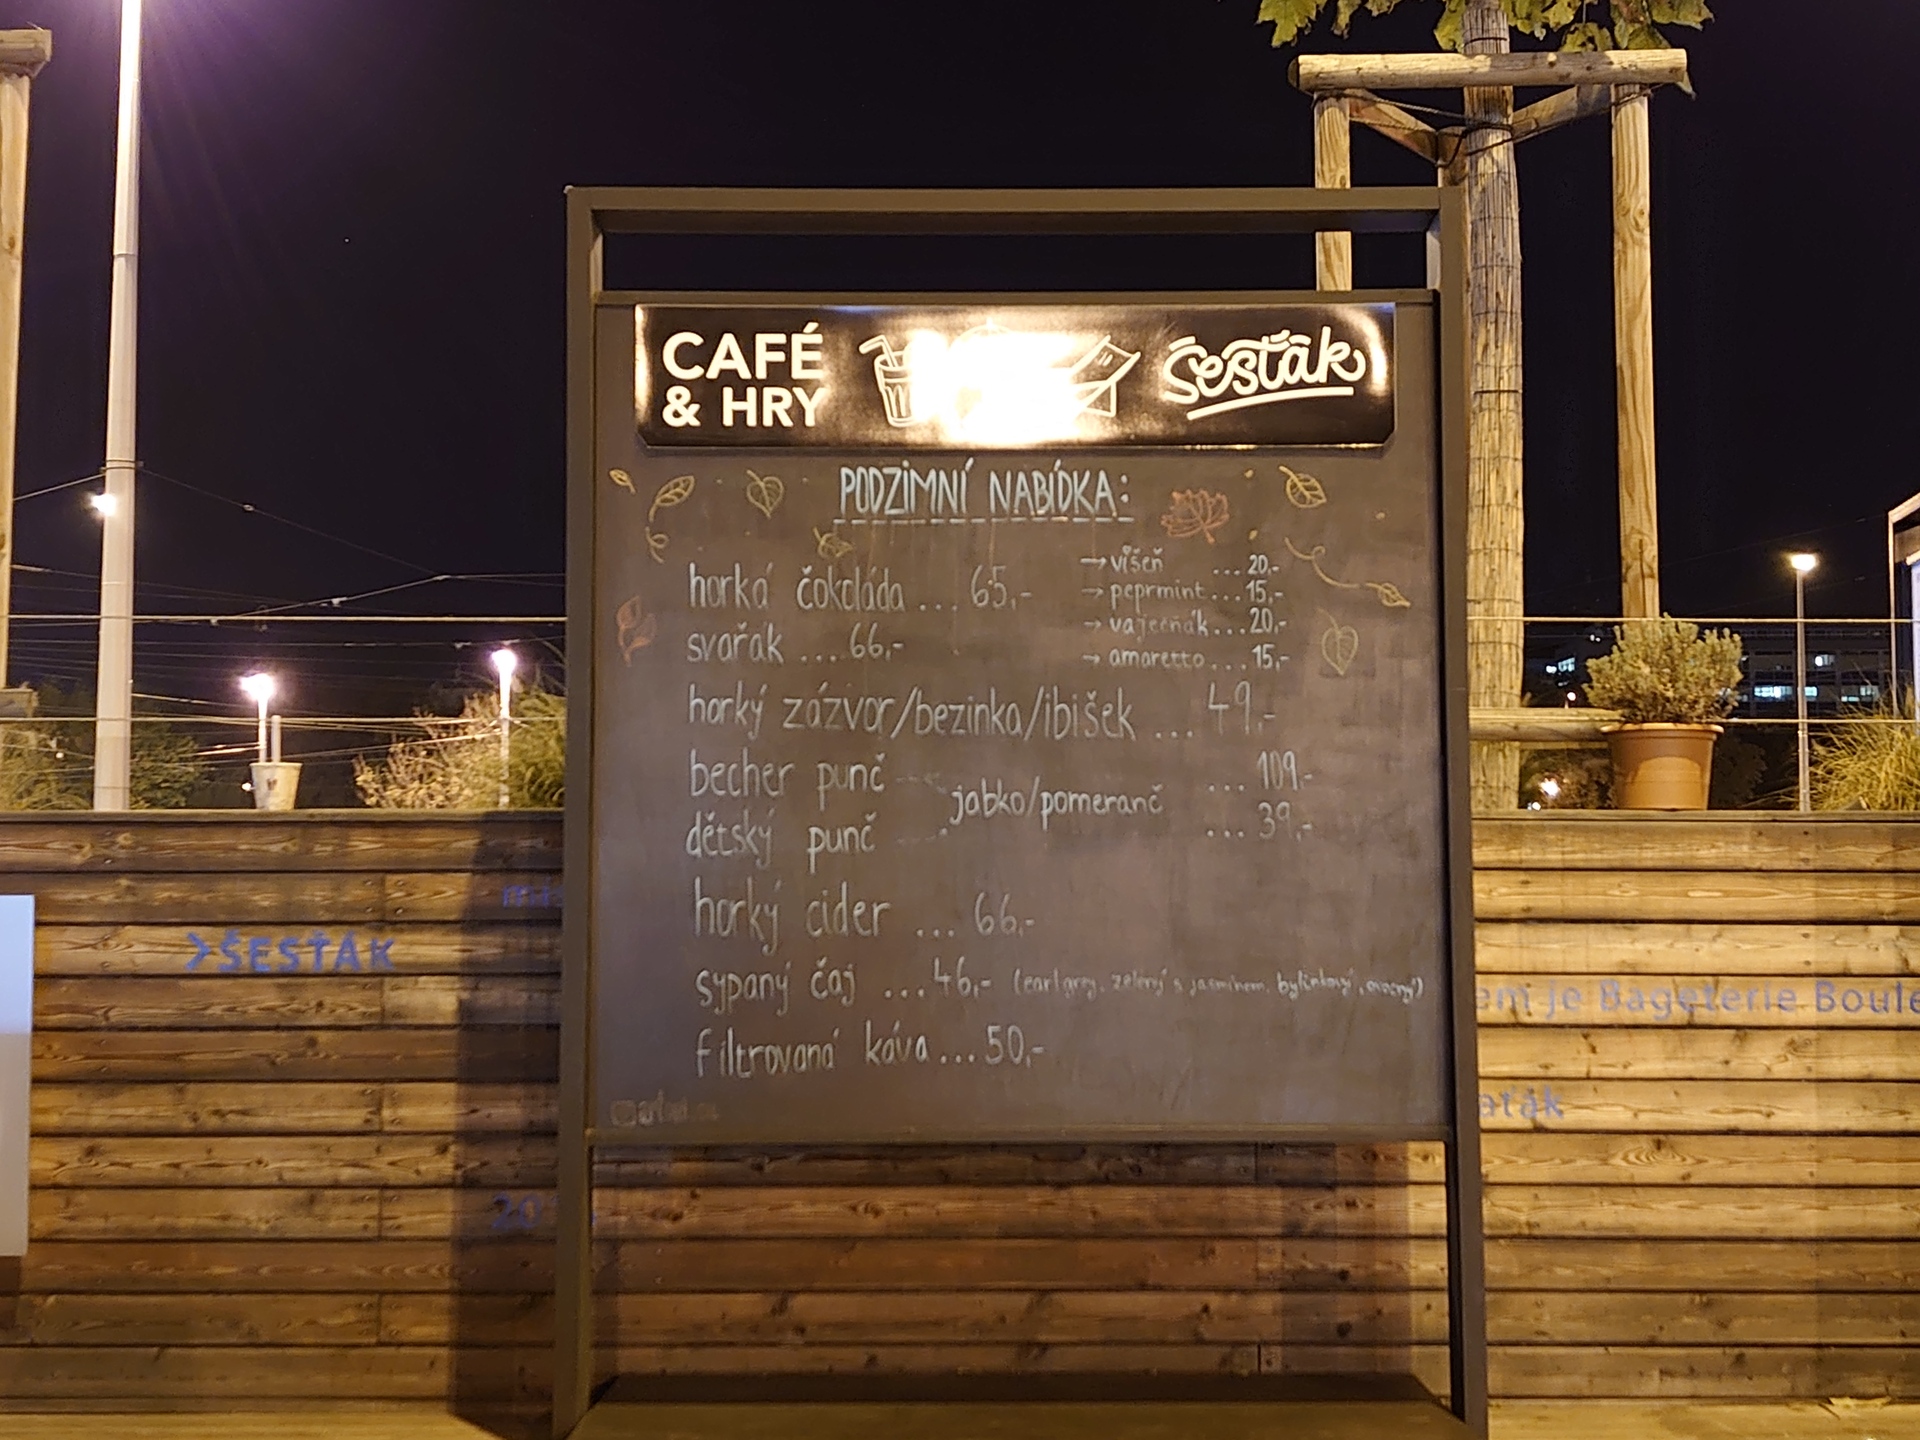 CAFÉ
& HRY
Šesťák
PODZIMNÍ NABÍDKA:
horká čokoláda ... 65,-
→ višeň ... 20,-
→ peprmint ... 15,-
→ vaječňák ... 20,-
→ amaretto ... 15,-
svařák .... 66,-
horký zázvor/bezinka/ibišek ... 49,-
becher punč ... 109,-
jablko/pomeranč
dětský punč ... 39,-
horký cider ... 66,-
sypaný čaj ... 46,- (earl grey, zelený s jasmínem, bylinkový, ovocný)
filtrovaná káva ... 50,-
>ŠESŤÁK
em je Bageterie Boule
20